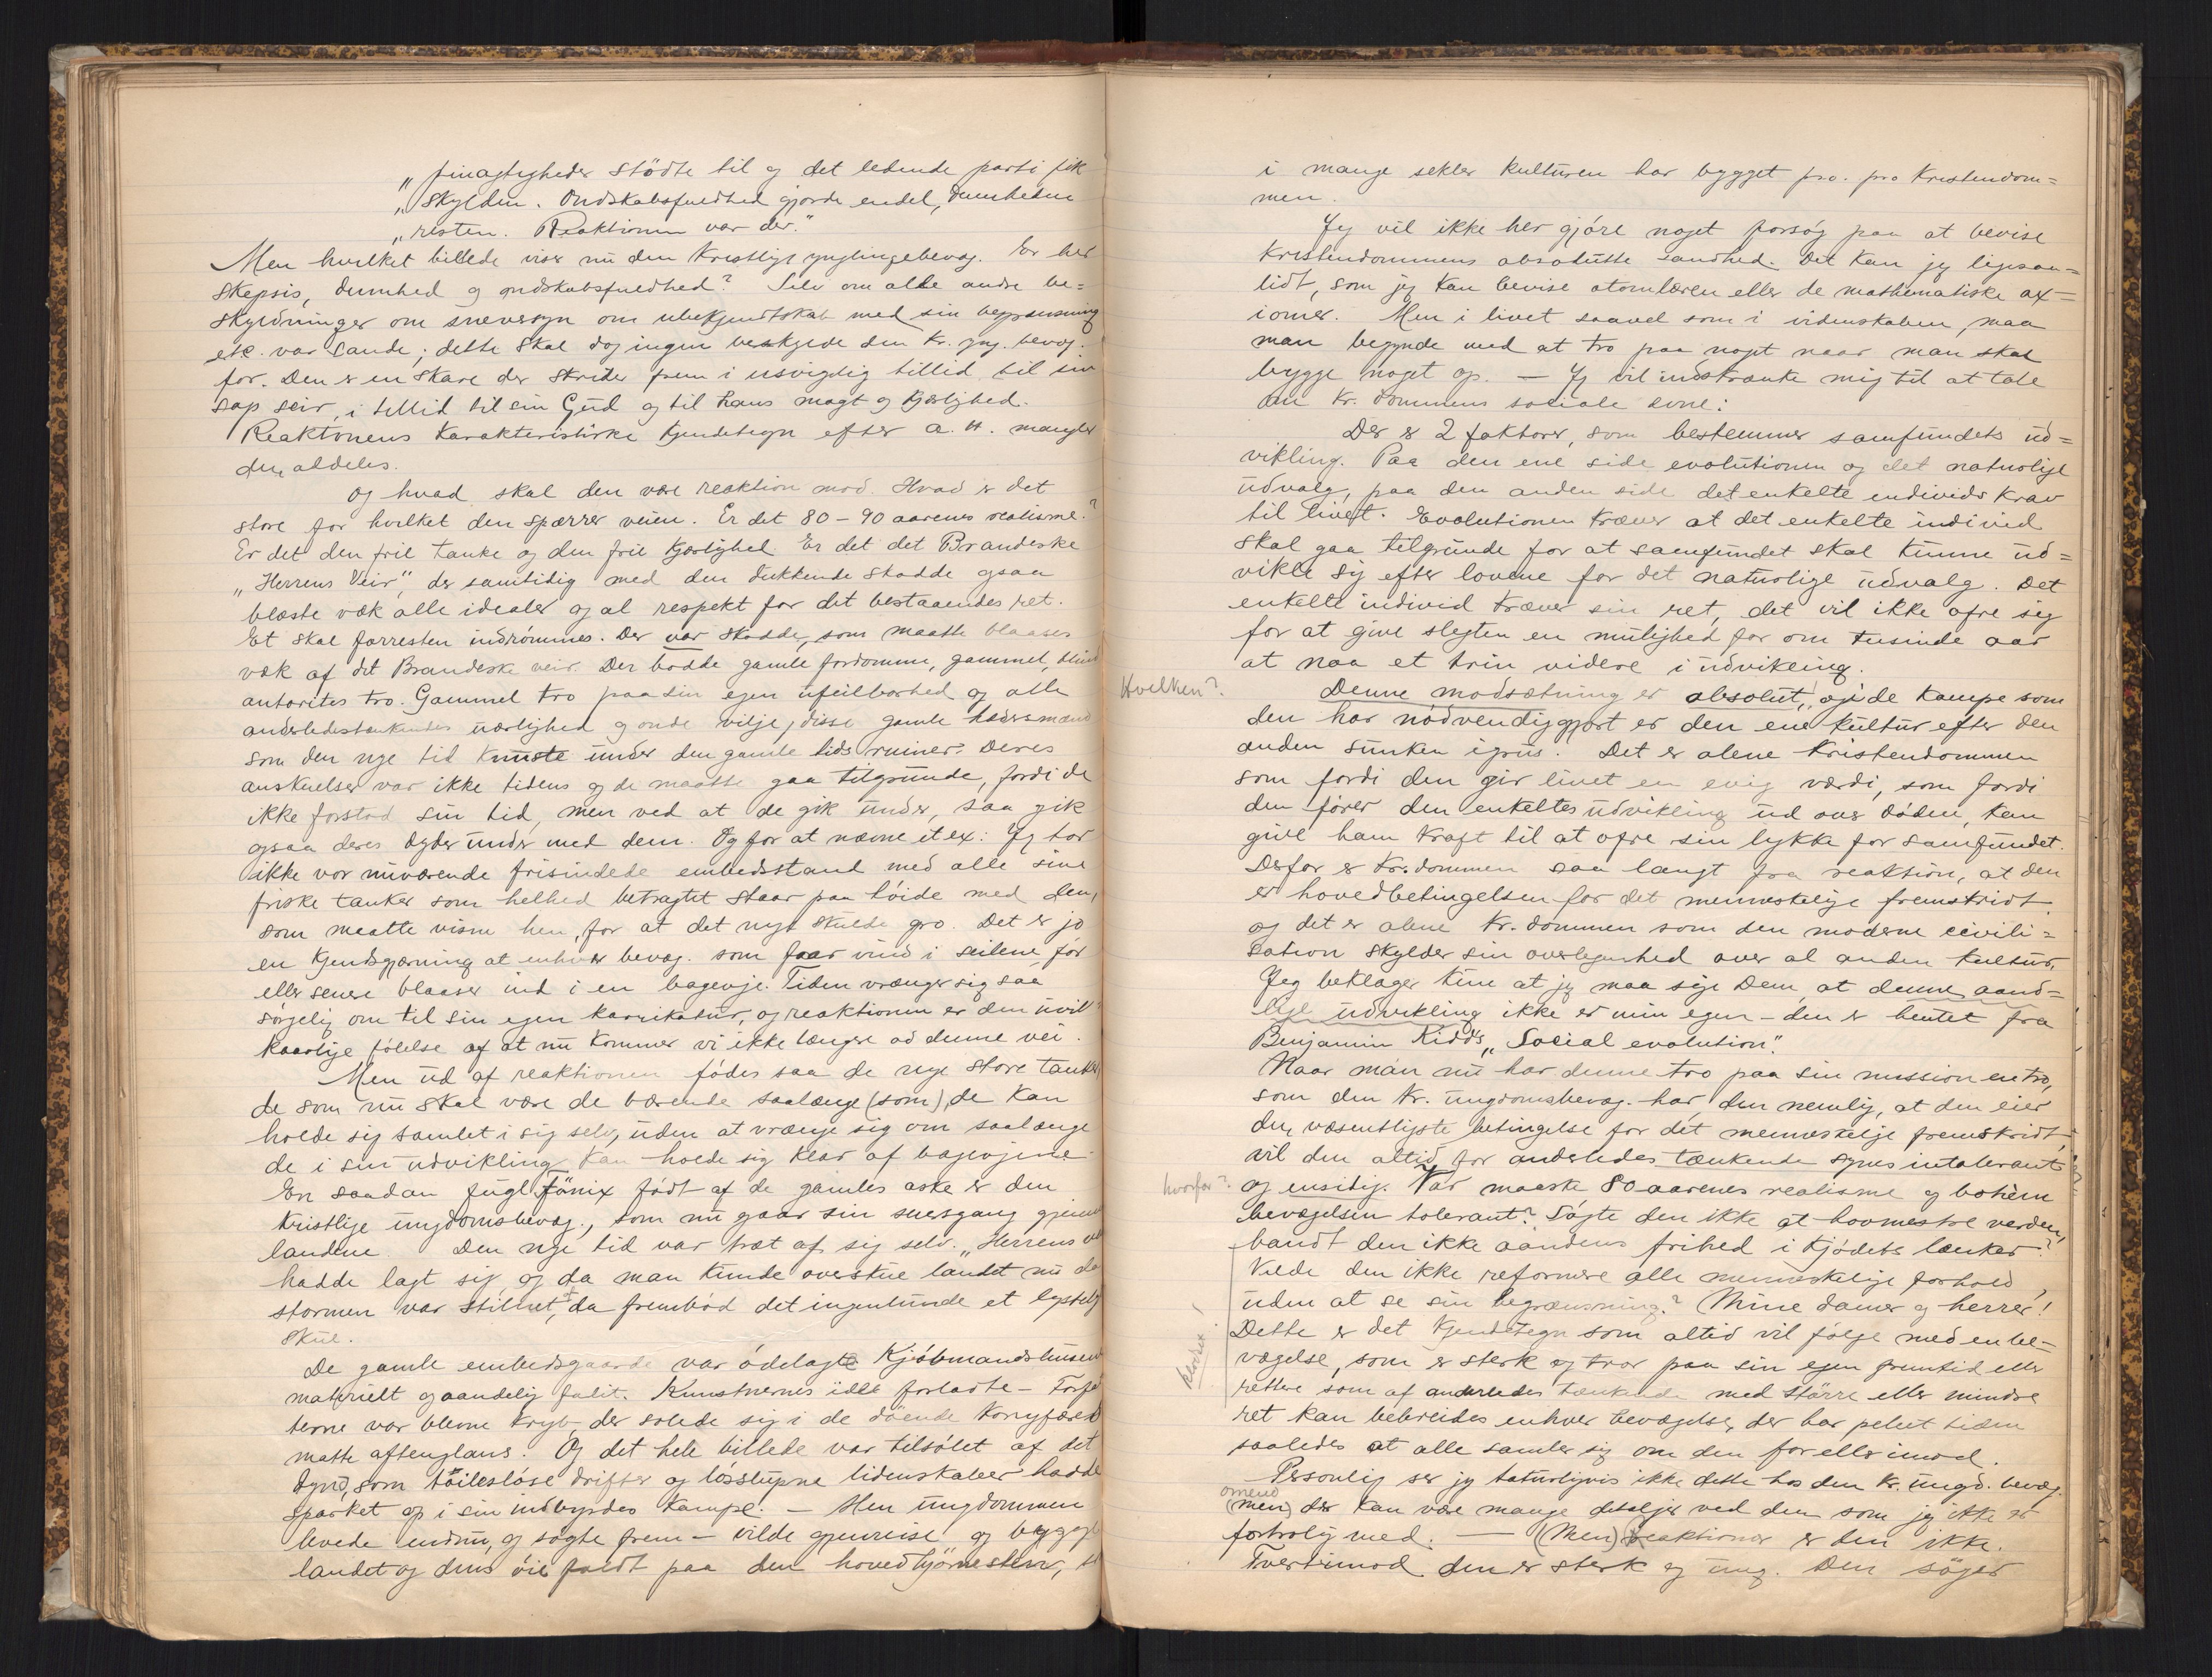 „finagtigheder stödte til og det ledende parti fik
„skylden. Ondskabsfuldhed gjorde endel, dumheden
„resten. Reaktionen var der."
Men hvilket billede viser nu den kristlige ynglingebevæg. Er her
skepsis, dumhed og ondskabsfuldhed? Selv om alle andre be=
skyldninger om sneversyn om ubekjendtskab med sin begrænsning
etc. var sande; dette skal dog ingen beskylde den kr. yng. bevæg.
for. Den er en skare der skrider frem i usvigelig tillid til sin
sags seir, i tillid til sin Gud og til hans magt og kjærlighed.
Reaktionens karakteristiske kjendetegn efter a. H. mangler
den aldeles.
Og hvad skal den være reaktion mod. Hvad er det
store for hvilket den spærrer veien. Er det 80-90 aarenes realisme?
Er det den frie tanke og den frie kjærlighed. Er det det Brandeske
„Herrens Veir", der samtidig med den dukkende skodde ogsaa
blæste væk alle idealer og al respekt for det bestaaendes ret.
Et skal forresten indrömmes. Der var skodde, som maatte blaases
væk af det Brandeske veir. Der bodde gamle fordomme, gammel, blind
autoritets tro. Gammel tro paa sin egen ufeilbarhed og alle
anderledestænkendes uærlighed og onde vilje, disse gamle hædersmænd
som den nye tid knuste under den gamle tids ruiner. Deres
anskuelser var ikke tidens og de maatte gaa tilgrunde, fordi de
ikke forstod sin tid, men ved at de gik under, saa gik
ogsaa deres dyder under med dem. Og for at nævne et ex: Jeg tror
ikke vor nuværende frisindede embedsstand med alle sine
friske tanker som helhed betragtet staar paa höide med den,
som maatte visne hen, for at det nye skulde gro. Det er jo
en kjendsgjærning at enhver bevæg. som faar vind i seilene för
eller senere blaaser ind i en bagevje. Tiden vrænger sig saa
sörgelig om til sin egen karrikatur, og reaktionen er den uvil=
kaarlige fölelse af at nu kommer vi ikke længere ad denne vei.
Men ud af reaktionen födes saa de nye store tanker
de som nu skal være de bærende saalænge (som) de kan
holde sig samlet i sig selv, uden at vrænge sig om saalænge
de i sin udvikling kan holde sig klar af bagevjerne.
En saadan fugl Fönix födt af de gamles aske er den
kristlige ungdomsbevæg., som nu gaar sin seiersgang gjennem
landene. Den nye tid var træt af sig selv. „Herrens
hadde lagt sig og da man kunde overskue landet nu da
stormen var stilnet, da fremböd det ingenlunde et lystelig
skue.
De gamle embedsgaarde var ödelagte Kjöbmandshusene
materielt og aandelig falit. Kunstnernes idealer forladte -
terne var blevne kryb, der solede sig i de döende
matte aftenglans. Og det hele billede var tilsölet af det
dynd, som töilesløse drifter og lösslupne lidenskaber hadde
sparket op i sin indbyrdes kampe. — Men ungdommen
levede endnu, og sögte frem - vilde gjenreise og bygge
landet og dens öie faldt paa den hovedhjörnesten,
i mange sekler kulturen har bygget paa. paa kristendom=
men.
Jeg vil ikke her gjöre noget forsög paa at bevise
kristendommens absolutte sandhed. Det kan jeg ligesaa=
lidt, som jeg kan bevise atomlæren eller de mathematiske ax=
iomer. Men i livet saavel som i videnskaben, maa
man begynde med at tro paa noget naar man skal
bygge noget op. — Jeg vil indskrænke mig til at tale
om kr. dommens sociale evne:
Der er 2 faktorer, som bestemmer samfundets ud=
vikling. Paa den ene side evolutionen og det naturlige
udvalg, paa den anden side det enkelte individs krav
til livet. Evolutionen kræver at det enkelte individ
skal gaa tilgrunde for at samfundet skal kunne ud=
vikle sig efter lovene for det naturlige udvalg. Det
enkelte individ kræver sin ret, det vil ikke ofre sig
for at give slegten en mulighed for om tusinde aar
at naa et trin videre i udvikling.
Hvelken?
Denne modsætning er absolut, og i de kampe som
den har nödvendiggjort er den ene kultur efter den
anden sunken i grus. Det er alene kristendommen
som fordi den gir livet en evig værdi, som fordi
den förer den enkeltes udvikling ud over döden, kan
give ham kraft til at ofre sin lykke for samfundet.
Derfor er kr.dommen saa langt fra reaktion, at den
er hovedbetingelsen for det menneskelige fremskridt
og det er alene kr. dommen som den moderne civili=
sation skylder sin overlegenhed over al anden kultur.
Jeg beklager kun at jeg maa sige Dem, at denne aand=
lige udvikling ikke er min egen - den er hentet fra
Benjamin Kidds „Social evolution".
Naar man nu har denne tro paa sin mission en tro,
som den kr. ungdomsbevæg. har, den nemlig, at den eier
den væsentligste betingelse for det menneskelige fremskridt,
vil den altid for anderledes tænkende synes intolerant
hvorfor?
og ensidig. Var maaske 80 aarenes realisme og bohêm
bevægelsen tolerant? Sögte den ikke at hovmestre verden,
bandt den ikke aandens frihed i kjödets lænker?
Vilde den ikke reformere alle menneskelige forhold,
uden at se sin begrænsning? Mine damer og herrer!
Dette er det kjendetegn som altid vil fölge med en be=
vægelse, som er sterk og tror paa sin egen fremtid eller
rettere som af anderledes tænkende med större eller mindre
ret kan bebreides enhver bevægelse, der har pelset tiden
saaledes at alle samler sig om den for eller imod.
Personlig ser jeg naturligvis ikke dette hos den kr. ungd. bevæg.
omend
(men) der kan være mange detaljer ved den som jeg ikke er
fortrolig med. — (Men) reaktionær er den ikke.
Tvertimod den er sterk og ung. Den söger